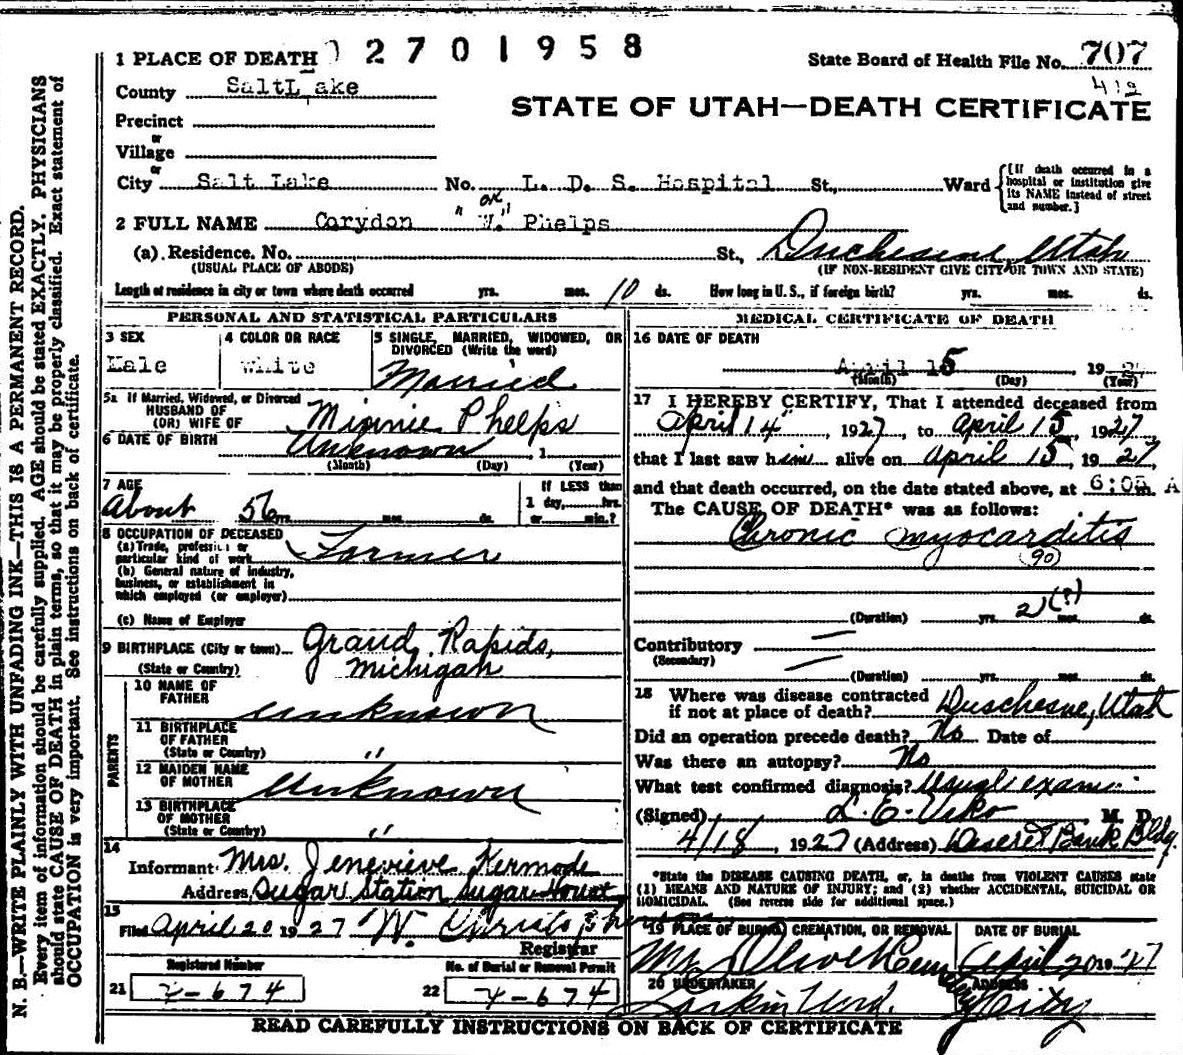 N. B.—WRITE PLAINLY WITH UNFADING INK—THIS IS A PERMANENT RECORD.
Every item of information should be carefully supplied. AGE should be stated EXACTLY. PHYSICIANS
should state CAUSE OF DEATH in plain terms, so that it may be properly classified. Exact statement of
OCCUPATION is very important. See instructions on back of certificate.
1 PLACE OF DEATH 2701958 State Board of Health File No. 707
County SaltLake 412
STATE OF UTAH—DEATH CERTIFICATE
Precinct
or
Village
or
City Salt Lake No. L. D. S. Hospital St., Ward [If death occurred in a hospital or institution give its NAME instead of street and number.]
2 FULL NAME Corydon "or W." Phelps
(a) Residence. No. St., Duchesne, Utah
(USUAL PLACE OF ABODE) (IF NON-RESIDENT GIVE CITY OR TOWN AND STATE)
Length of residence in city or town where death occurred yrs. mos. 10 ds. How long in U.S., if foreign birth? yrs. mos. ds.
PERSONAL AND STATISTICAL PARTICULARS
3 SEX
Male
4 COLOR OR RACE
White
5 SINGLE, MARRIED, WIDOWED, OR
DIVORCED (Write the word)
Married
5a If Married, Widowed, or Divorced
HUSBAND OF
(OR) WIFE OF Minnie Phelps
6 DATE OF BIRTH Unknown 1
(Month) (Day) (Year)
7 AGE
About 56 yrs. mos. ds.
If LESS than
1 day, hrs.
or min.?
8 OCCUPATION OF DECEASED
(a) Trade, profession or
particular kind of work Farmer
(b) General nature of industry,
business, or establishment in
which employed (or employer)
(c) Name of Employer
9 BIRTHPLACE (City or town) Grand Rapids,
(State or Country) Michigan
PARENTS
10 NAME OF
FATHER Unknown
11 BIRTHPLACE
OF FATHER
(State or Country) "
12 MAIDEN NAME
OF MOTHER Unknown
13 BIRTHPLACE
OF MOTHER
(State or Country) "
14
Informant Mrs. Jenevieve Kermode
Address Sugar Station Sugar House
15
Filed April 20 1927 W. Christopherson
Registrar
Registered Number No. of Burial or Removal Permit
21 7-674 22 7-674
MEDICAL CERTIFICATE OF DEATH
16 DATE OF DEATH
April 15 19
(Month) (Day) (Year)
17 I HEREBY CERTIFY, That I attended deceased from
April 14, 1927, to April 15, 1927
that I last saw him alive on April 15, 1927,
and that death occurred, on the date stated above, at 6:05 m. A
The CAUSE OF DEATH* was as follows:
Chronic myocarditis
(90)
(Duration) yrs. 2(?) mos. ds.
Contributory —
(Secondary) —
(Duration) yrs. mos. ds.
18 Where was disease contracted
if not at place of death? Duschesne, Utah
Did an operation precede death? No Date of
Was there an autopsy? No
What test confirmed diagnosis? Usual exam
(Signed) L. E. Viko M. D.
4/18, 1927 (Address) Deseret Bank Bldg.
*State the DISEASE CAUSING DEATH, or, in deaths from VIOLENT CAUSES state
(1) MEANS AND NATURE OF INJURY; and (2) whether ACCIDENTAL, SUICIDAL OR
HOMICIDAL. (See reverse side for additional space.)
19 PLACE OF BURIAL, CREMATION, OR REMOVAL DATE OF BURIAL
Mt Olivet Cem April 20 1927
20 UNDERTAKER ADDRESS
Larkin Und. City
READ CAREFULLY INSTRUCTIONS ON BACK OF CERTIFICATE